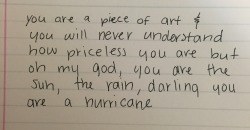 you are a piece of art &
you will never understand
how priceless you are but
oh my god, you are the
sun, the rain, darling you
are a hurricane